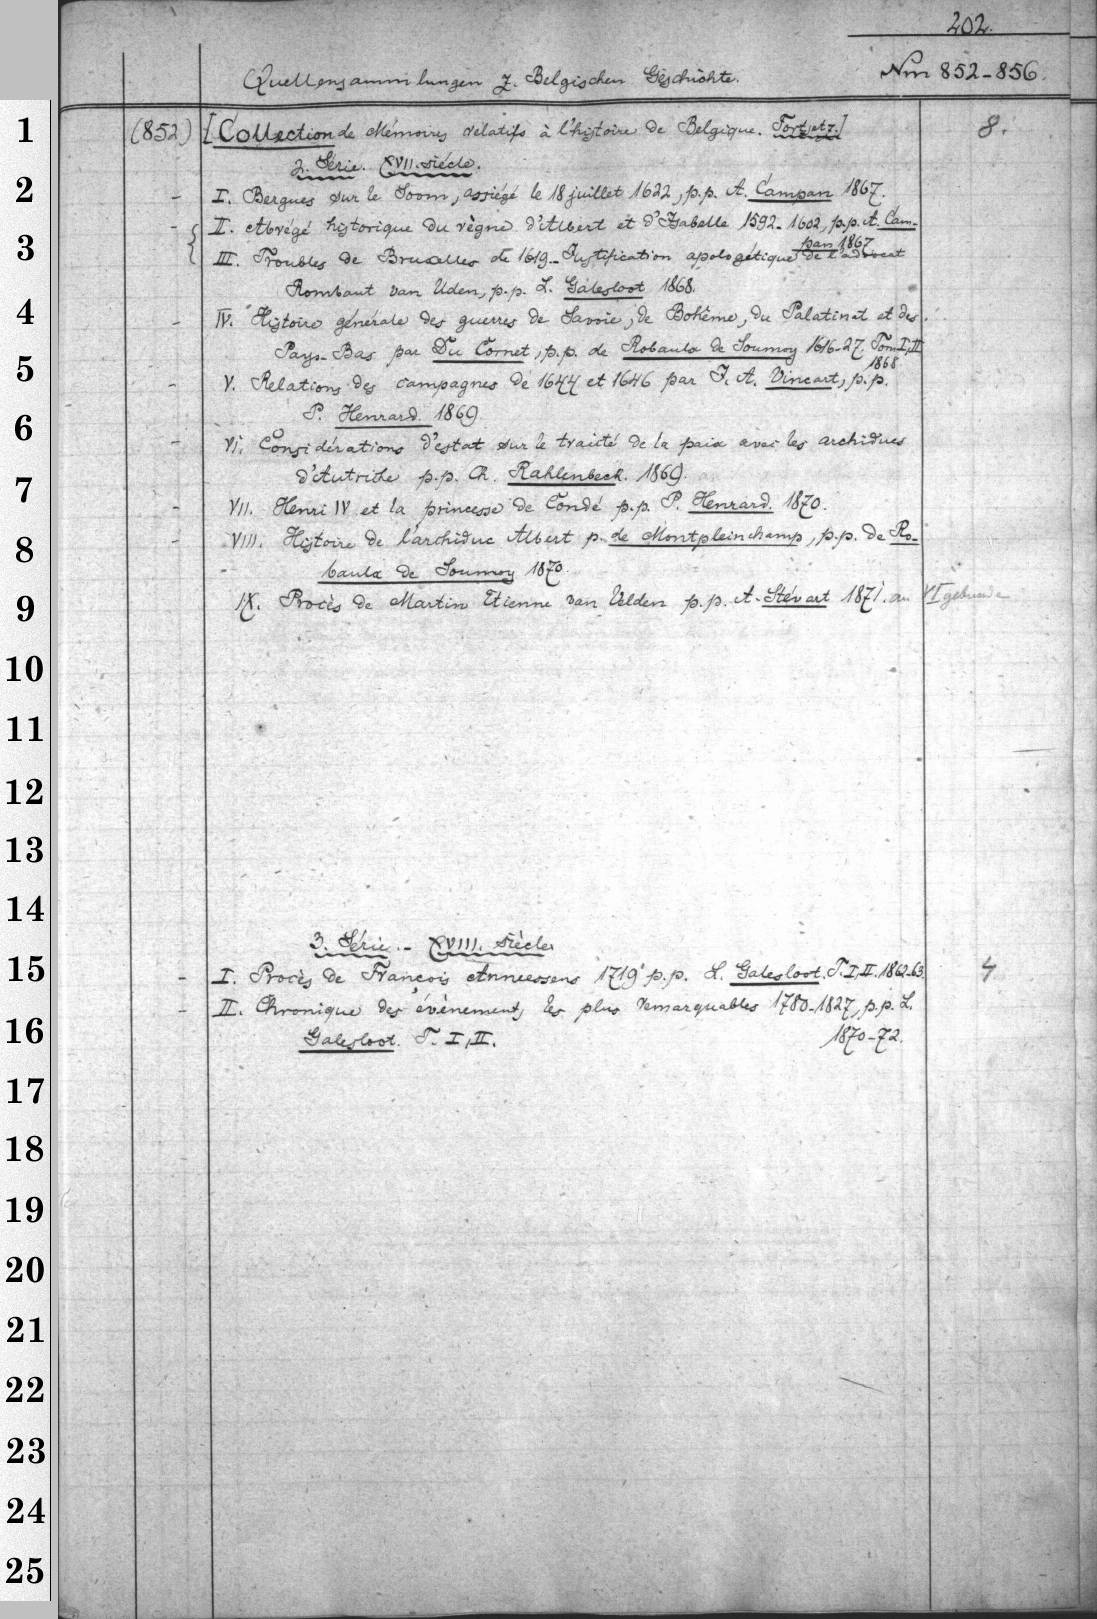 202.
Quellensammlungen z. Belgischen Geschichte. Nrn 852-856.
(852) [Collection de Mémoires rélatifs à l'histoire de Belgique. Fortsetz.] 8.
2. Série. XVII. siécle.
- I. Bergues sur le Soom, assiégé le 18 juillet 1622, p.p. A. Campan 1867.
- II. Abrégé historique du règne d'Albert et d'Isabelle 1592-1602, p.p. A. Cam-
pan 1867
III. Troubles de Bruxelles de 1619- Justification apologétique de l'advocat
Rombaut van Uden, p.p. L. Galesloot 1868.
- IV. Histoire générale des guerres de Savoie, de Bohême, du Palatinat et des
Pays-Bas par Du Cornet, p.p. de Robaulx de Soumoy 1616-27. Tom I, II
1868
- V. Relations des campagnes de 1644 et 1646 par J. A. Vincart, p.p.
P. Henrard. 1869
- VI. Considérations d'estat sur le traicté de la paix avec les archiducs
d'Autriche p.p. Ch. Rahlenbeck. 1869.
- VII. Henri IV et la princesse de Condé p.p. P. Henrard. 1870.
- VIII. Histoire de l'archiduc Albert p. de Montpleinchamp, p.p. de Ro-
baulx de Soumoy 1870.
IX. Procès de Martin Etienne van Velden p.p. A. Stévart 1871. an VI gebunden
3. Série. - XVIII. siècle
- I. Procès de François Anneessens 1719 p.p. L. Galesloot. T. I, II. 1862-63. 4
- II. Chronique des évènements les plus remarquables 1780-1827, p.p. L.
Galesloot. T. I, II. 1870-72.
1
2
3
4
5
6
7
8
9
10
11
12
13
14
15
16
17
18
19
20
21
22
23
24
25